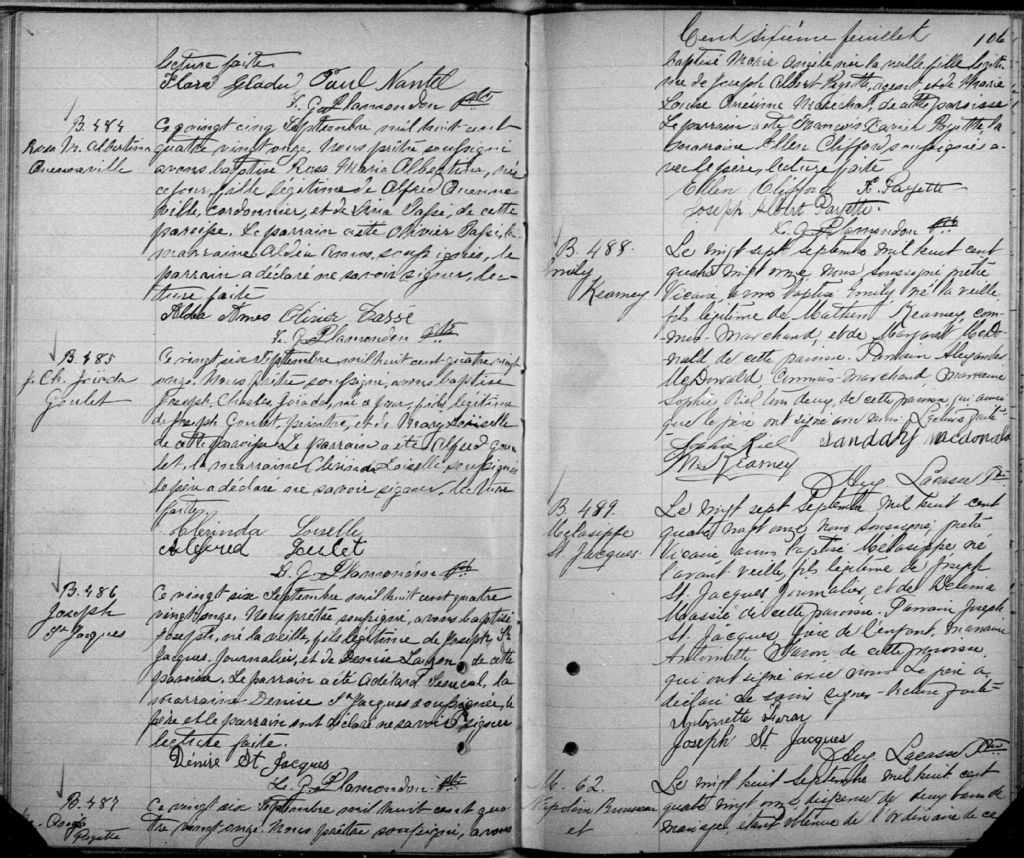 lecture faite
Flora Gladu Paul Nantel
L. G. Plamondon Ptre
B. 484
Rosa M. Albertina
Quenneville
Ce vingt cinq Septembre mil huit cent
quatre vingt onze, Nous prêtre soussigné
avons baptisé Rosa Maria Albertina, née
ce jour, fille légitime de Alfred Quenne
ville, cordonnier, et de Lina Tassé, de cette
paroisse. Le parrain a été Olivier Tassé, la
marraine Aldia Amos, soussignés, le
parrain a déclaré ne savoir signer, lec-
ture faite
Aldia Amos Olivier Tassé
L. G. Plamondon Ptre
B. 485
J. Ch. Joiada
Goulet
Ce vingt six Septembre mil huit cent quatre vingt
onze. Nous prêtre soussigné, avons baptisé
Joseph, Charles, Joiada, né ce jour, fils légitime
de Joseph Goulet, peintre, et de Mary Loiselle
de cette paroisse. Le parrain a été Alfred Gou
let, la marraine Clérinda Loiselle, soussignés
le père a déclaré ne savoir signer, lecture
faite,
Clérinda Loiselle
Alfred Goulet
L. G. Plamondon Ptre
B. 486
Joseph
St Jacques
Ce vingt six Septembre mil huit cent quatre
vingt onze. Nous prêtre soussigné, avons baptisé
Joseph, né la veille, fils légitime de Joseph St
Jacques, Journalier, et de Denise de cette
paroisse. Le parrain a été Adélard Senécal, la
marraine Denise St Jacques soussignée, le
père et le parrain ont déclaré ne savoir signer
lecture faite.
Dénise St Jacques
L. G. Plamondon Ptre
B. 487
Payette
Ce vingt six Septembre mil huit cent qua
tre vingt onze. Nous prêtre soussigné, avons
Cent sixième feuillet 106
baptisé Marie Angèle née la veille fille légiti
me de Joseph Albert Payette, agent, et de Marie
Louise Onésime Maréchal, de cette paroisse
Le parrain a été François Xavier Payette la
marraine Ellen Clifford soussignés a-
vec le père, lecture faite
Ellen Clifford F. Payette
Joseph Albert Payette.
L. G. Plamondon Ptre
B. 488.
Emily
Kearney
Le vingt sept septembre mil huit cent
quatre vingt onze nous soussigné prêtre
Vicaire, avons baptisé Emily, né la veille,
fils légitime de Mathew Kearney, com-
mis-Marchand, et de Margaret McDo-
nald de cette paroisse. Parrain Alexander
McDonald, Commis-Marchand Marraine
Sophie Riel tous deux, de cette paroisse, qui ainsi
que le père ont signé avec nous. Lecture faite-
Sophie Riel Sanddry McDonald
M. Kearney
Aug. Lacasse Ptre
B. 489.
Mélasippe
St. Jacques
Le vingt sept Septembre mil huit cent
quatre vingt onze nous soussigné, prêtre
Vicaire avons baptisé Mélasippe né
l'avant veille, fils légitime de Joseph
St. Jacques Journalier, et de Délima
Massie de cette paroisse. Parrain Joseph
St. Jacques, frère de l'enfant, marraine
Antoinette Daron de cette paroisse,
qui ont signé avec nous. Le père a
déclaré ne savoir signer - lecture faite-
Antoinette
Joseph St. Jacques
Aug. Lacasse Ptre
M. 62.
Napoléon
et
Le vingt huit Septembre mil huit cent
quatre vingt onze, dispense de deux bans de
mariage étant obtenue de l'ordinaire de ce